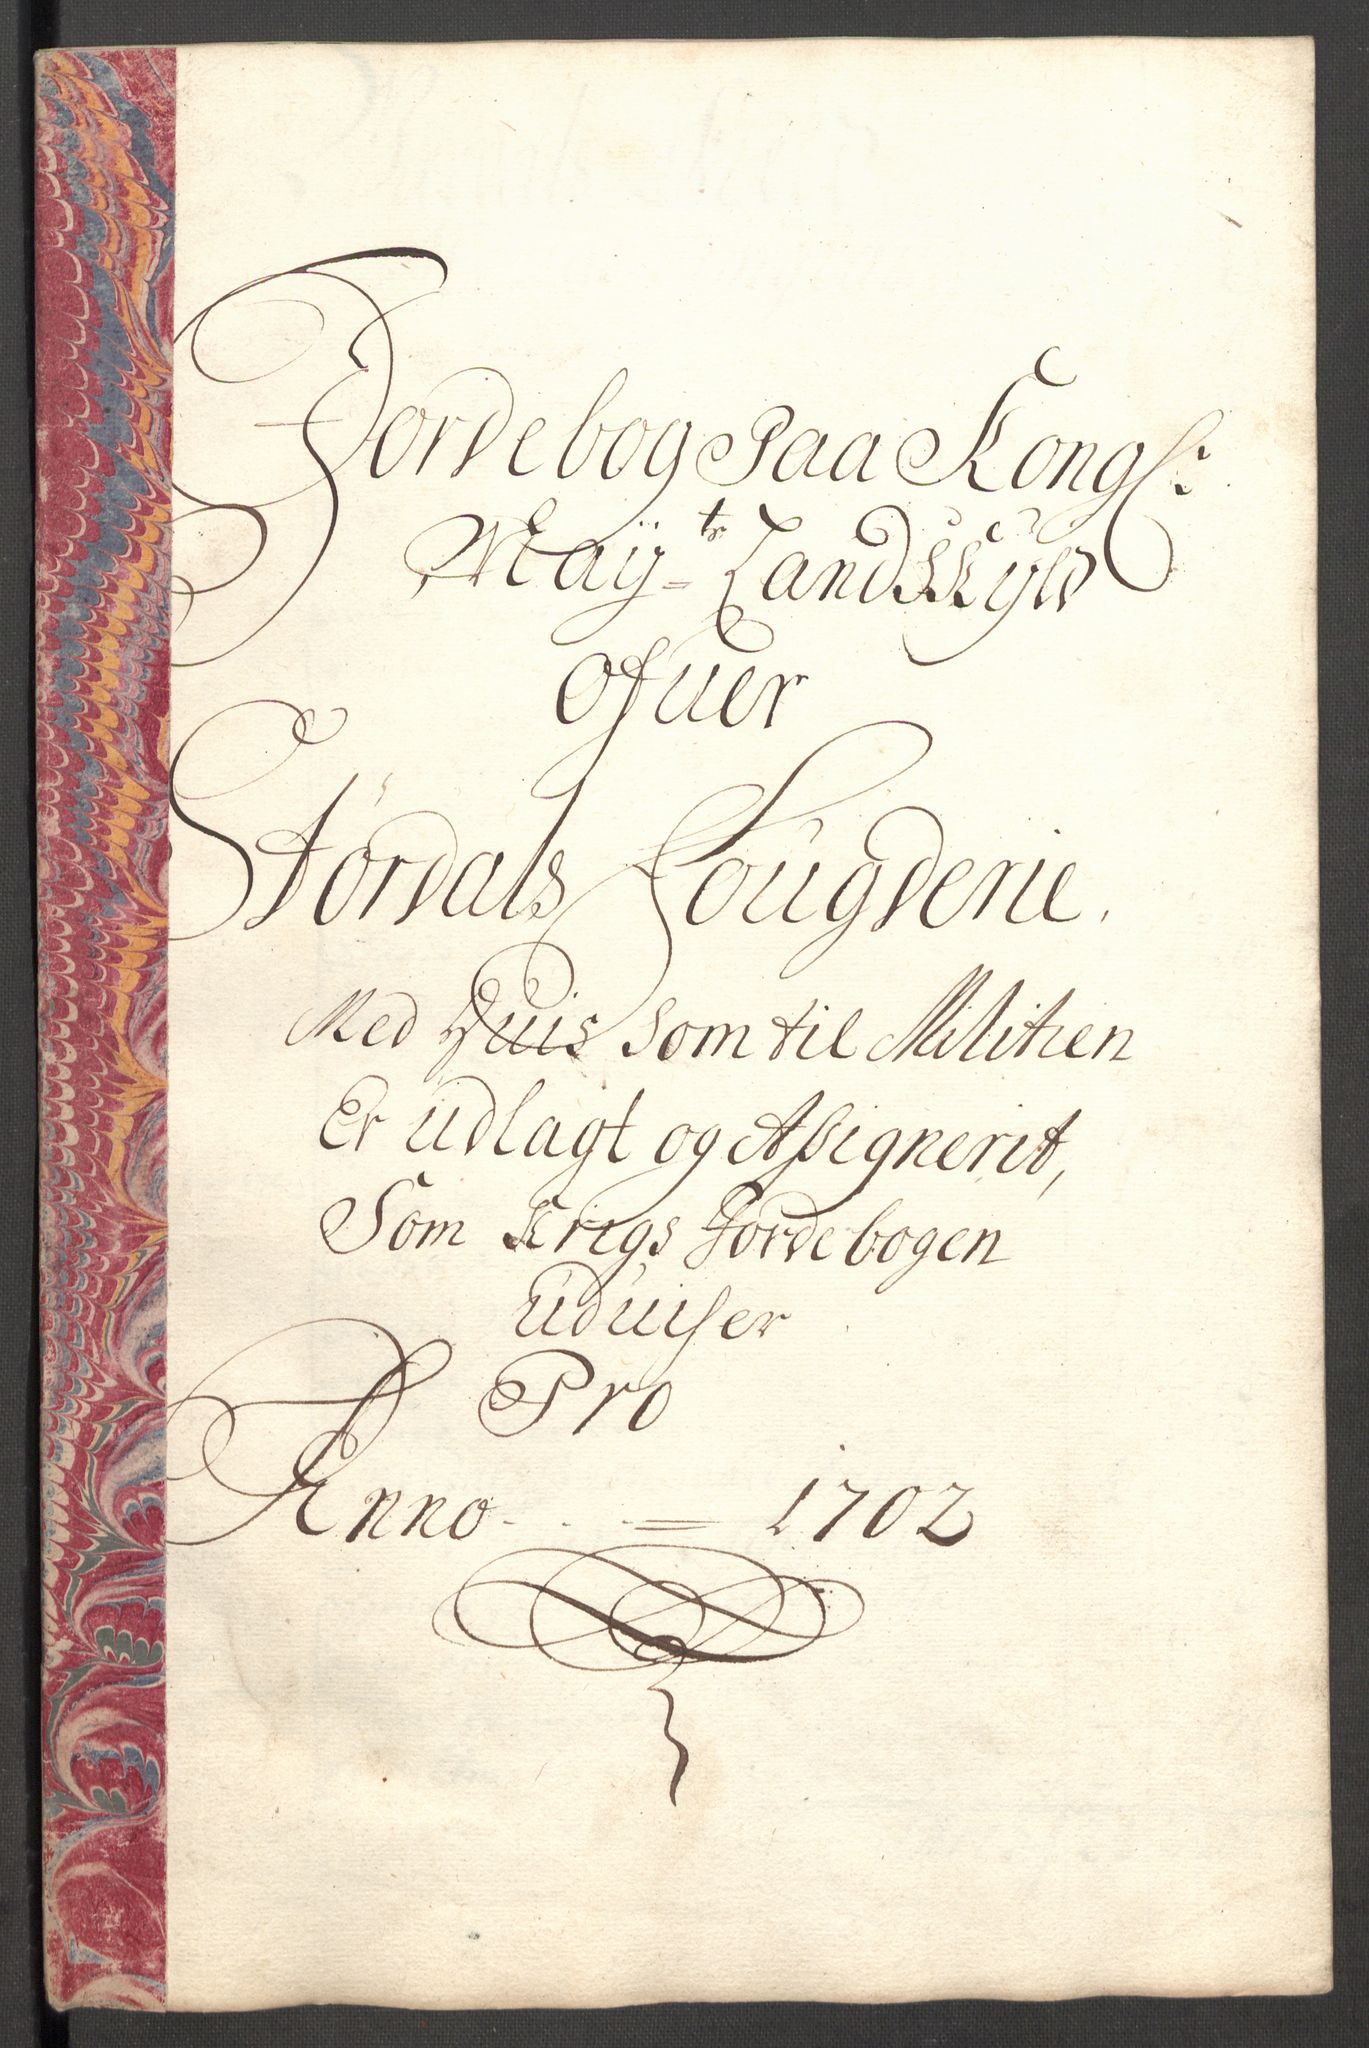 Jordebog Paa Kongl:
Mayᵗˢ Landskyld
Ofuer
Størdals Fougderie.
Med Huis som til Militien
Er Udlagt og Assignerit,
Som Krigs Jordebogen
Uduiser
Pro
Anno - . . = 1702